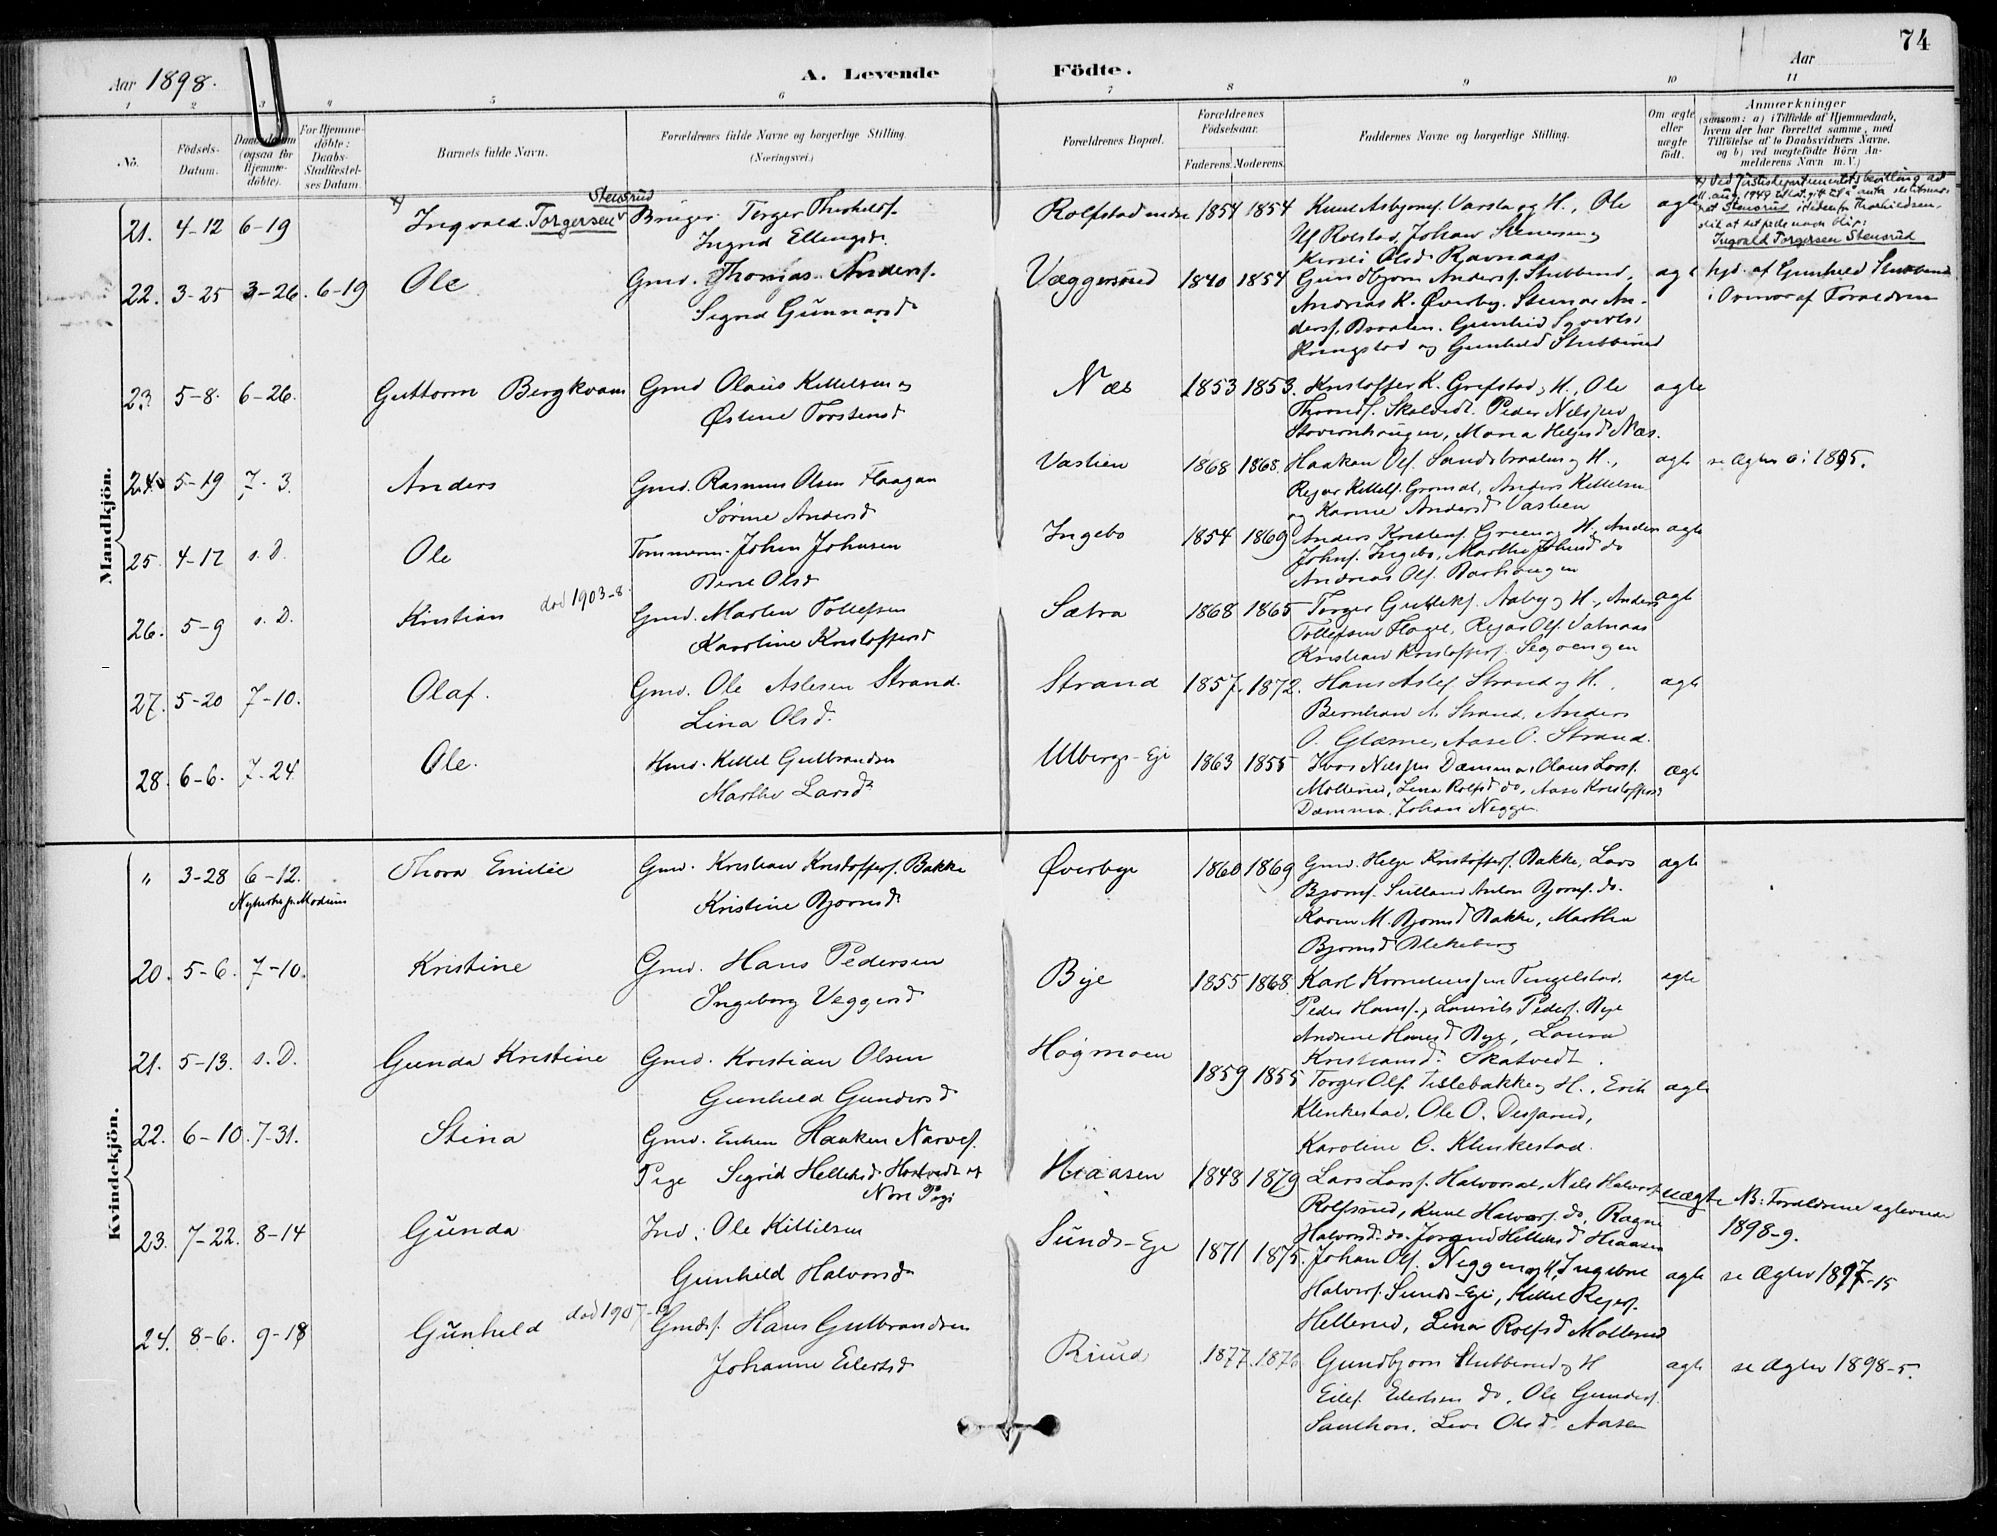 74
Aar 1898.
A. Levende Födte.
Aar
1 2 3 4 5 6 7 8 9 10 11
No.
Födsels-Datum.
Daabsdatum (ogsaa for Hjemme-döbte).
For Hjemme-döbte: Daabs-Stadfæstel-ses Datum.
Barnets fulde Navn.
Forældrenes fulde Navne og borgerlige Stilling. (Næringsvei.)
Forældrenes Bopæl.
Forældrenes Födselsaar.
Faderens. Moderens.
Faddernes Navne og borgerlige Stilling.
Om ægte eller uægte født.
Anmærkninger
(saasom: a) i Tilfælde af Hjemmedaab,
hvem der har forrettet samme, med
Tilföielse af to Daabsvidners Navne,
og b) ved uægtefödte Börn An-
melderens Navn m. V.)
Mandkjön.
21. 4-12 6-19 Ingvald Torgersen Stensrud
Bruger Torger Thorkelds.
Ingrid Ellingsd.
Rolfstad 1854 1854
Knud Asbjørns. Varsla og H., Ole
N Rolstad, Johan Stensrud
Kirsti Olsd Ravnaas
ægte
x) Ved Justisdepartementets bevilling ad
Stensrud istedenfor Thorkildsen,
slik at det fulde navn blir:
Ingvald Torgersen Stensrud
22. 3-25 3-26. 6-19 Ole
Gmd. Thomas Anders.
Sigrid Gunnarsd
Væggersrud 1840 1854
Gundbjørn Anders. Stubberud,
Andreas K. Øverby. Steinar An-
ders. Braaten. Gunhild Syverts.
Ringstad og Gunhild Stubberud
ægte
hjd. af Gunhild Stubberud
i Overvær af Forældrene
23. 5-8. 6-26. Guttorm Bergkvam
Gmd Olaus Kittelsen og
Østine Torstensd
Næs 1853 1853.
Kristoffer K. Grefstad og H., Ole
Thronds. Skalvedt. Peder Nilssen
Stovernhaugen, Maria Helgesd Næs.
ægte
24. 5-19 7-3. Anders
Gmd. Rasmus Olsen Flaagan
Sørine Andersd
Vastien 1868 1868.
Haakon Ols. Sandsbraaten og H.,
Rejar Kittels. Grønsdal, Anders Kittelsen
og Karine Andersd Vastien
ægte se Ægtev 6: 1895.
25. 4-17 s. D. Ole
Tømmerm. Johan Johnsen
Berte Olsd
Ingebo 1854 1869
Anders Kristens. Green og H., Anders
Johns. Ingebo, Marthe Johnsd do
Andreas Ols. Borhaugen
ægte
26. 5-9 s. D. Kristian død 1903-8.
Gmd. Martin Tollefsen
Karoline Kristoffersd
Sætra 1868 1865
Torger Guttorms. Aaby og H., Anders
Tollefsen Flagel, Rejar Ols. Vatnaas
Kristian Kristoffers. Segvengen
ægte
27. 5-20 7-10. Olaf.
Gmd. Ole Aslesen Strand.
Lina Olsd.
Strand 1857. 1872.
Hans Asles. Strand og H.,
Bernhard A. Strand, Anders
O. Glæsne, Aase O. Strand.
ægte
28. 6-6. 7-24. Ole.
Hmd. Kittel Gulbrandsen
Marthe Larsd
Ulbergs-Eje 1863 1855
Iver Nilssen Dæmma, Olaus Lars.
Mollerud, Lena Rolfsd do, Aase Kristoffersd
Dæmma, Johan Neggen
ægte
Kvindekjön.
" 3-28 6-12. Thora Emilie
Nykirke p. Modum
Gmd. Kristian Kristoffers. Bakke
Kristine Bjørnsd
Øverbye 1860 1869
Gmd. Helge Kristoffers. Bakke, Lars
Bjørns. Sulland Anton Bjørns. do.
Karen M. Bjørnsd Bakke, Marthea
Bjørnsd Blekeberg
ægte
20. 5-6. 7-10. Kristine
Gmd. Hans Pedersen
Ingeborg Veggersd
Bye 1855 1868.
Karl Korneliussen Tingelstad.
Peder Hans., Laurits Peders. Bye
Andrine Hansd Bye, Laura
Kristiansd. Skatvedt.
ægte
21. 5-13. s. D. Gunda Kristine
Gmd. Kristian Olsen
Gunhild Gundersd
Høgmoen 1859 1855
Torger Ols. Tislebakke og H., Erik
Klinkestad, Ole O. Desserud,
Karoline C. Klinkestad.
ægte
22. 6-10. 7-31. Stina
Gmd. Enkem Haaken Narves.
Pige Sigrid Helliksd. af
Nore Pgj
Hiaasen 1848 1879
Lars Lars. Halvorsdal, Nils Halvors.
Rolfsrud, Knut Halvors. do, Ragne
Halvorsd. do. Jorand Helliksd Hiaasen
uægte NB: Forældrene ægteviede
1898-9.
23. 7-22. 8-14 Gunda
Ind. Ole Kittilsen
Gunhild Halvorsd
Sunds-Eje 1871 1875.
Johan Ols. Neggen og H, Ingebret
Halvors. Sunds-Eje, Kittel Rejers.
Hellerud, Lena Rolfsd Mollerud
ægte se Ægtev 1897-15
24. 8-6. 9-18 Gunhild død 1907
Gmds. Hans Gulbrandsen
Johanne Eilertsd
Rimd 1877. 1876
Gundbjørn Stubberud og H
Eilef Eilertsen do, Ole Gunders.
Santhon, Live Olsd. Aasen
ægte se Ægtev 1898-5.